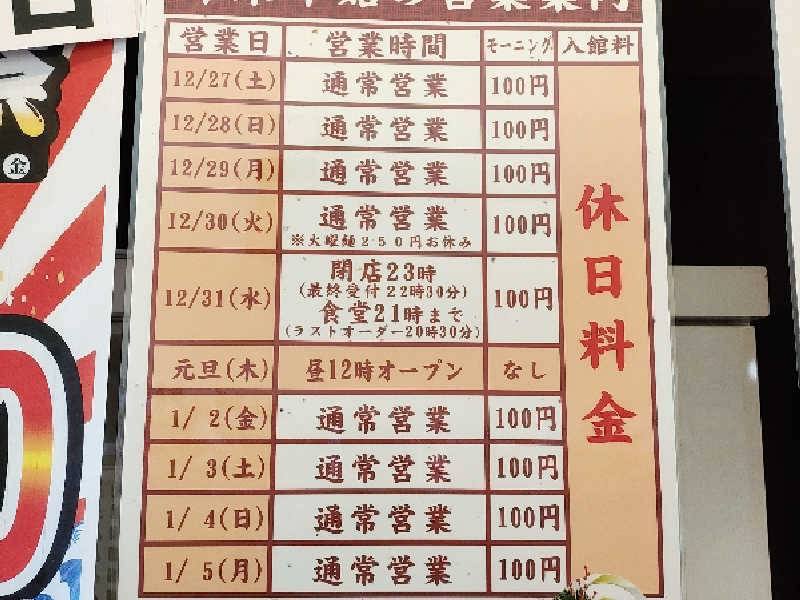 営業日 営業時間 モーニング 入館料
12/27(土) 通常営業 100円
12/28(日) 通常営業 100円
12/29(月) 通常営業 100円
12/30(火) 通常営業 100円
※火曜麺250円お休み
12/31(水) 閉店23時 100円
(最終受付22時30分)
食堂21時まで
(ラストオーダー20時30分)
元旦(木) 昼12時オープン なし
1/2(金) 通常営業 100円
1/3(土) 通常営業 100円
1/4(日) 通常営業 100円
1/5(月) 通常営業 100円
休日料金
金